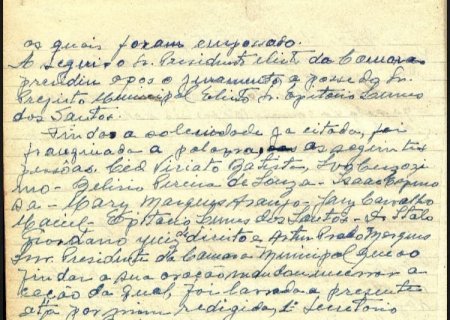 os quais foram empossado.
A seguir o Sr. Presidente eleito da Camara
presidiu apos o juramento, a posse do Sr.
Prefeito Municipal Eleito Sr. Epitacio Lemes
dos Santos.
Finda a solenidade ja citada, foi
franquiada a palavra, as seguintes
pessôas. Ced Viriato Batista,
mo - Belirio Pereira de Souza - Isaac
da - Mary Marques Araujo - Jary Carvalho
Maciel - Epitacio Lemes dos Santos - Dr Italo
Giordano juiz de direito e Artur Prado Marques
Snr. Presidente da Camara Municipal que ao
findar a sua oração mandou encerrar a
cação da qual, foi larrada a presente
ata por mim redigida, 1º Secretorio